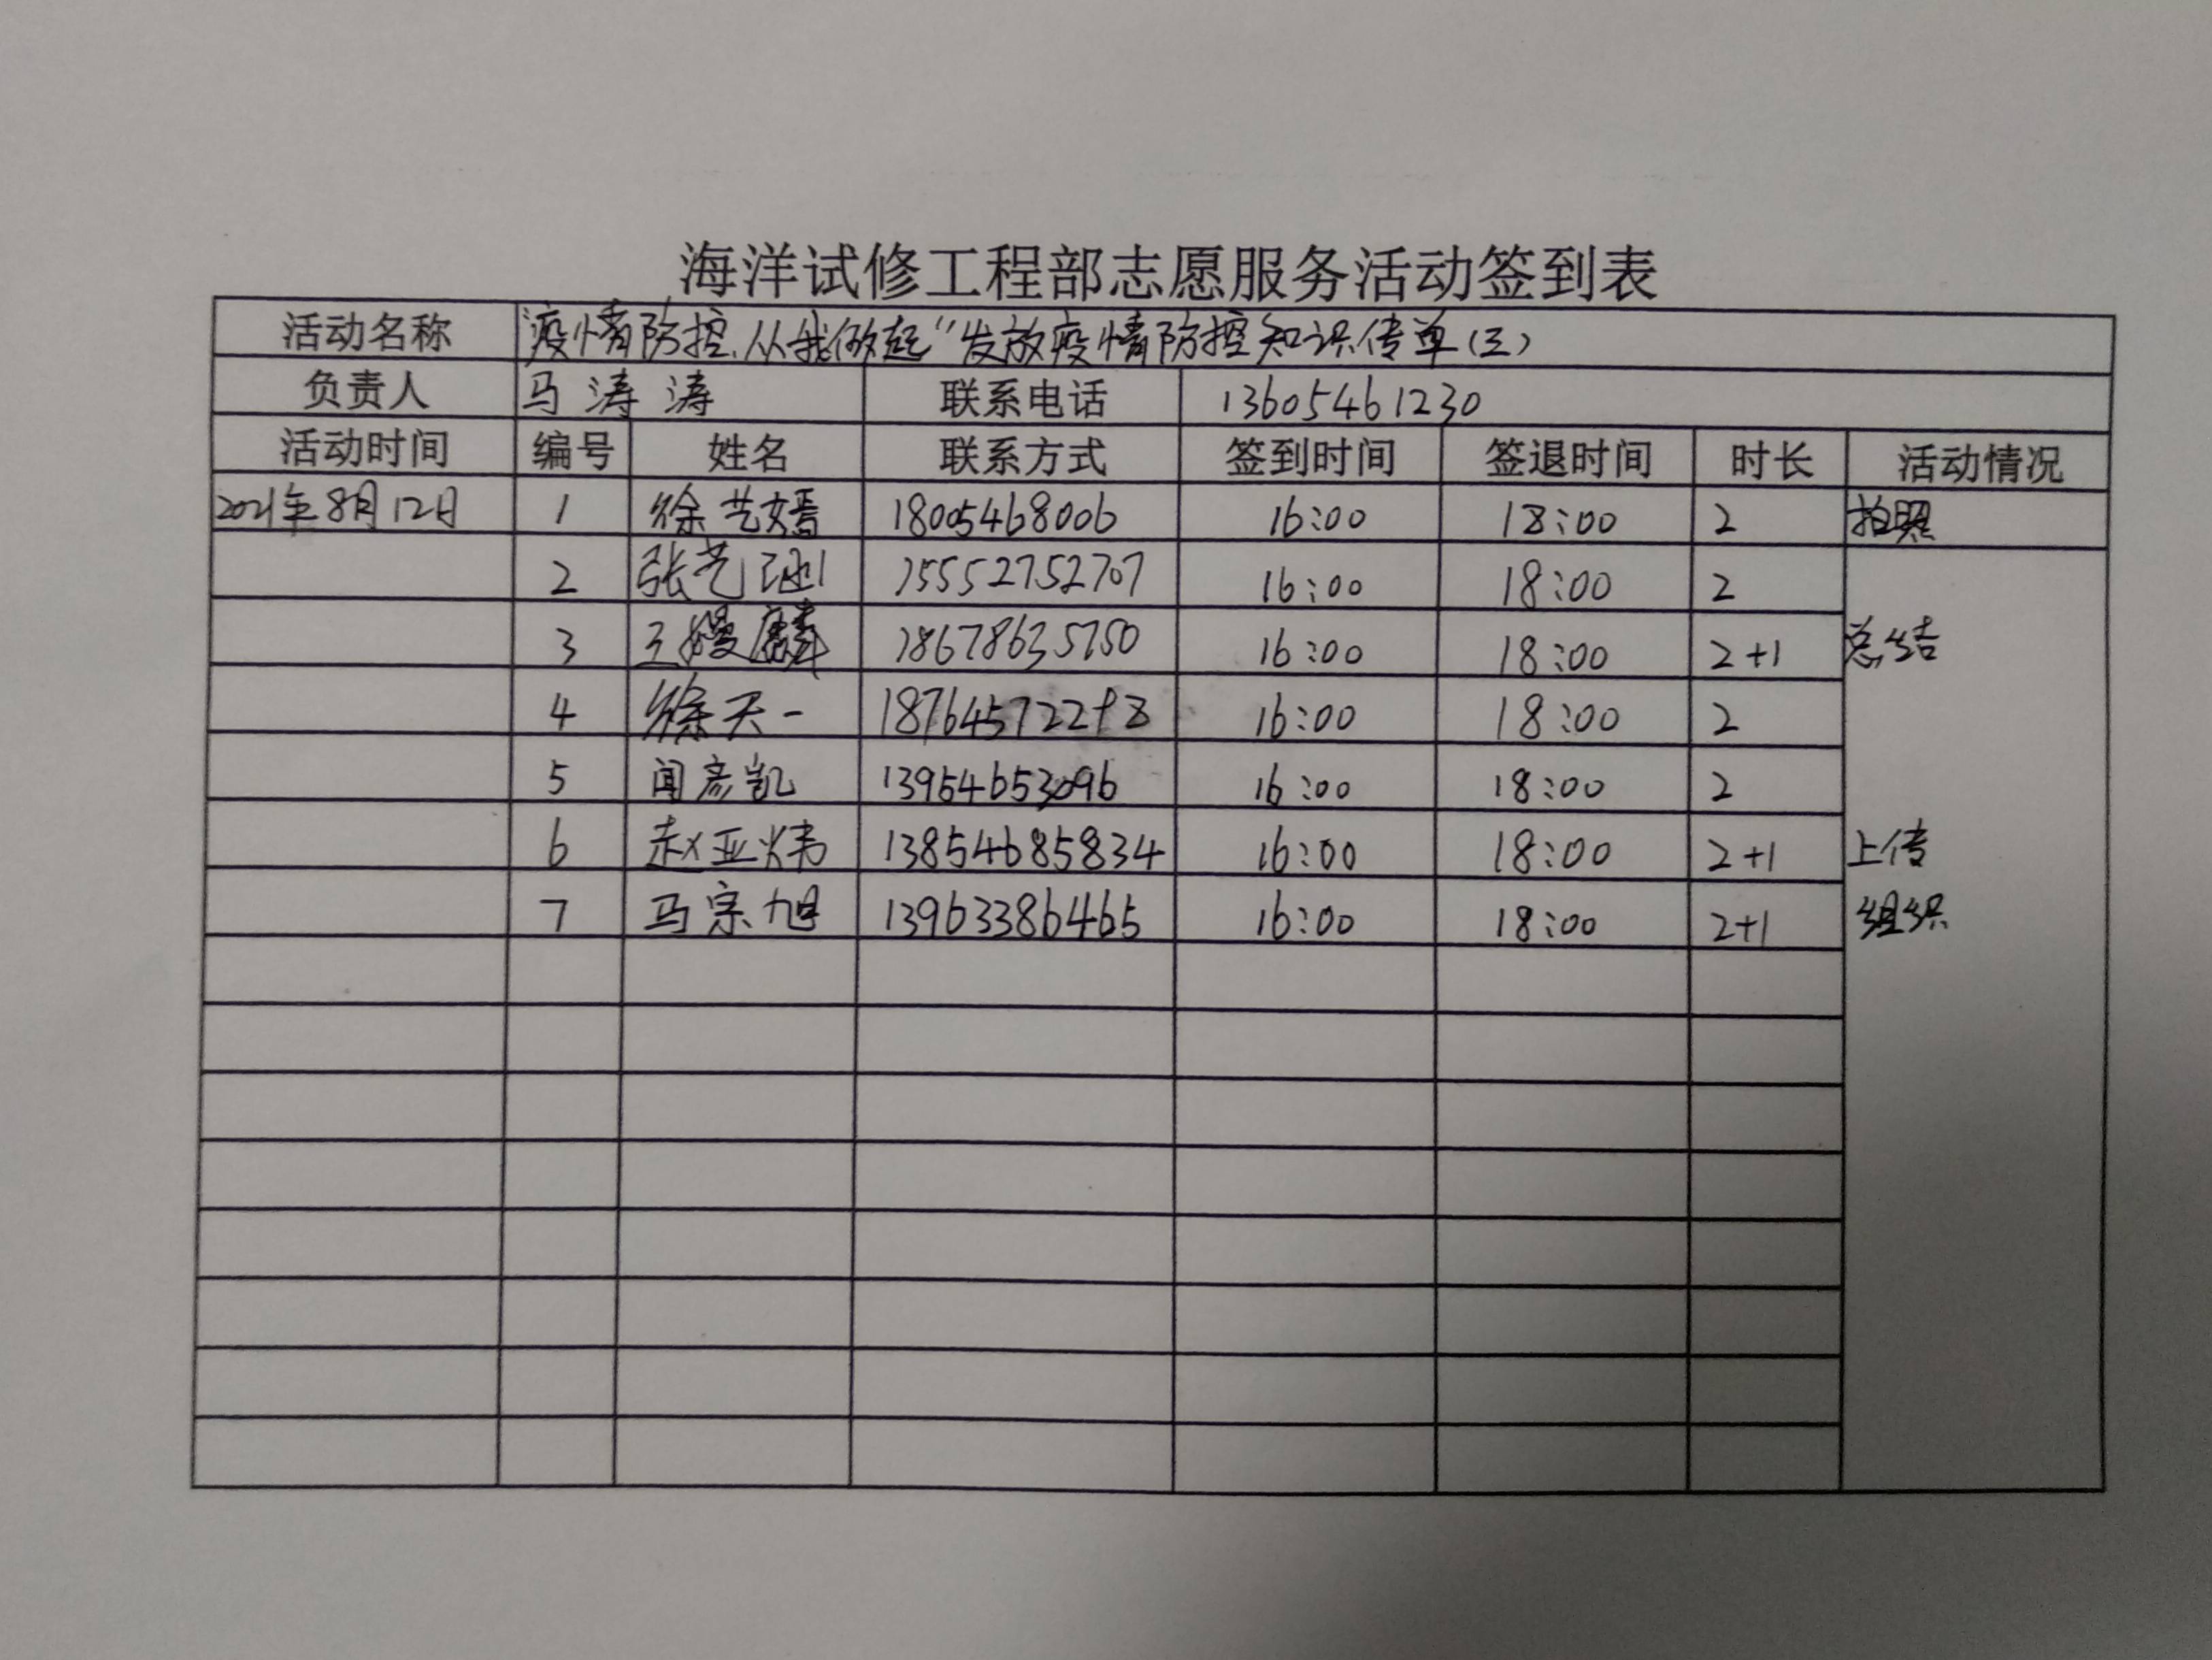 海洋试修工程部志愿服务活动签到表
活动名称 疫情防控,从我做起"发放疫情防控知识传单(三)
负责人 马涛涛 联系电话 13605461230
活动时间 编号 姓名 联系方式 签到时间 签退时间 时长 活动情况
2021年8月12日 1 徐艺嫣 18005468006 16:00 18:00 2 拍照
2 张艺涵 15552752707 16:00 18:00 2
3 18678635750 16:00 18:00 2+1 总结
4 徐天一 16:00 18:00 2
5 闻彦凯 13954653096 16:00 18:00 2
6 赵亚炜 13854685834 16:00 18:00 2+1 上传
7 马宗旭 13963386465 16:00 18:00 2+1 组织